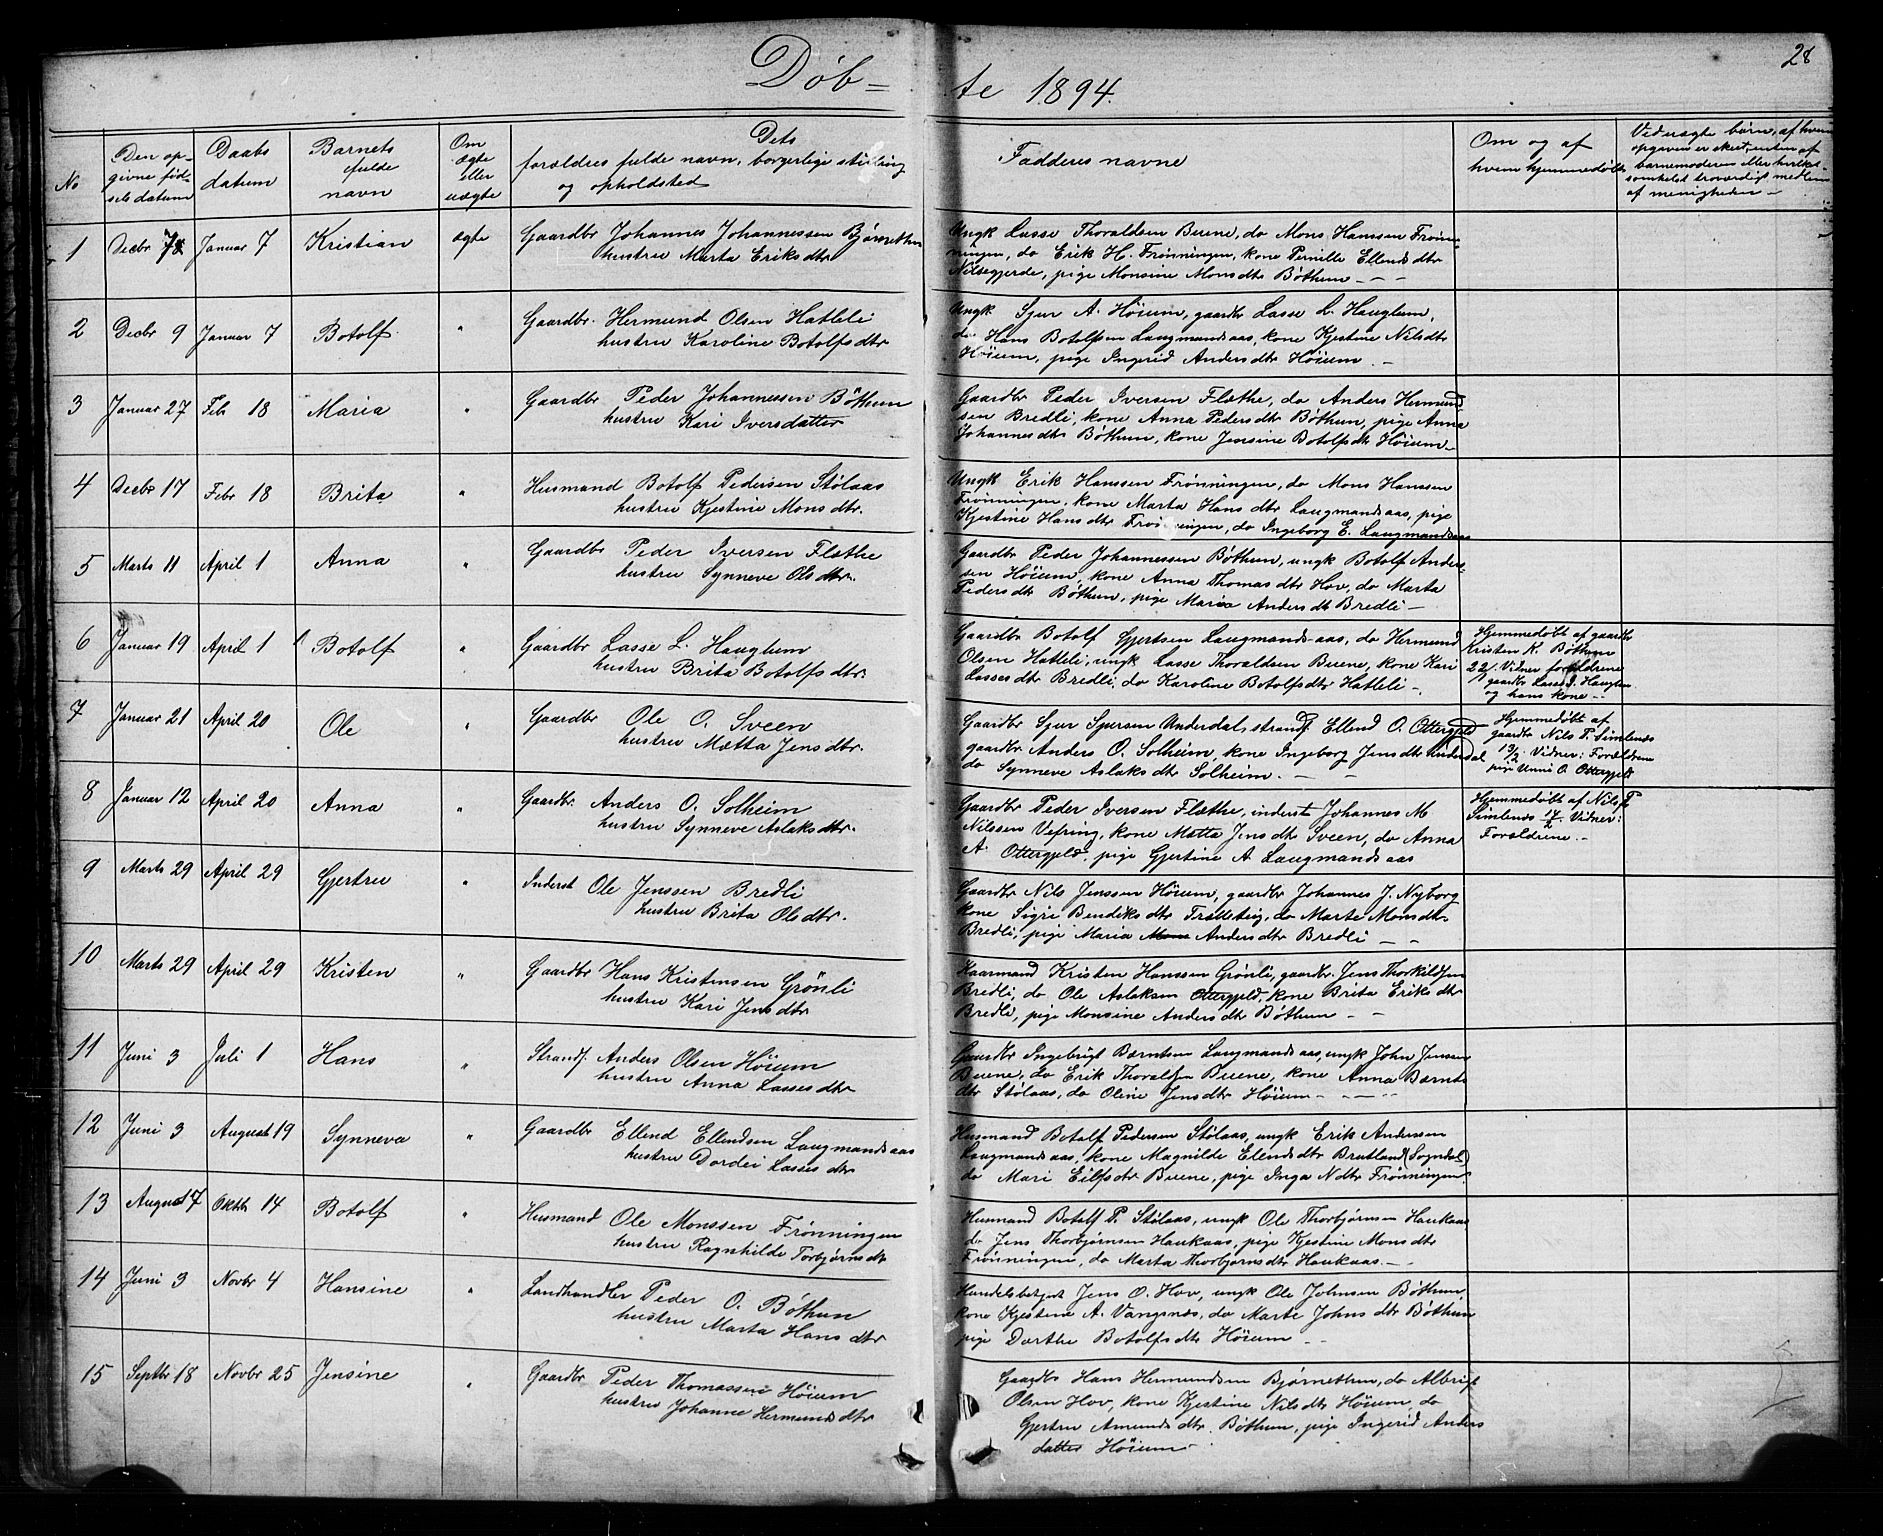 28
Døb= te 1894.
No
Den op-
givne fød-
sels datum
Daabs
datum
Barnets
fulde
navn
Om
ægte
eller
uægte
Dets
forældres fulde navn, borgerlige stilling
og opholdsted
Fadderes navne
Om og af
hvem hjemmedøbt
Ved uægte børn, af hvem
opgaven er skeet, enten af
barnemoderen eller hvilket
somhelst troværdigt medlem
af menigheden -
1 Decbr 7 Januar 7 Kristian ægte Gaardbr Johannes Johannessen Bjørnethun
hustru Marta Eriksdtr
Ungk Lasse Thoraldsen Buene, do Mons Hanssen Frøn-
ningen, do Erik H. Frønningen, kone Pernille Ellendsdtr
Nilsegjerde, pige Monsine Monsdtr Bøthun - - -
2 Decbr 9 Januar 7 Botolf " Gaardbr. Hermund Olsen Hatleli
hustru Karoline Botolfsdtr
Ungk Sjur A. Høium, gaardbr Lasse L. Hauglum,
do Hans Botolfsen Laugmandsaas, kone Kjestine Nilsdtr
Høium, pige Ingrid Andersdtr Høium -
3 Januar 27 Feb 18 Maria " Gaardbr Peder Johannessen Bøthun
hustru Kari Iversdatter
Gaardbr Peder Iversen Flæthe, do Anders Hermund
sen Bredli, kone Anna Pedersdtr Bøthun, pige Anna
Johannesdtr Bøthun, kone Jensine Botolfsdtr Høium -
4 Decbr 17 Febr 18 Brita " Husmand Botolf Pedersen Stølaas
hustru Kjestine Monsdtr.
Ungk Erik Hanssen Frønningen, do Mons Hanssen
Frønningen, kone Marta Hansdtr Laugmandsaas, pige
Kjestine Hansdtr Frønningen, do Ingeborg E. Laugmandsaas
5 Marts 11 April 1 Anna " Gaardbr Peder Iversen Flæthe
hustru Synneve Olsdtr.
Gaardbr Peder Johannessen Bøthun, ungk Botolf Anders-
sen Høium, kone Anna Thomasdtr Hov, do Marta
Pedersdtr Bøthun, pige Maria Andersdt Bredli -
6 Januar 19 April 1 Botolf " Gaardbr Lasse L. Hauglum
hustru Brita Botolfsdtr.
Gaardbr Botolf Gjertsen Laugmandsaas, do Hermund
Olsen Hatleli, ungk Lasse Thoraldsen Buene, kone Kari
Lassesdtr Bredli, do Karoline Botolfsdtr Hatleli -
Hjemmedøbt af gaardbr
Kristen K. Bøthun
22/1. Vidner forældrene
gaardbr Lasse I. Hauglum
og hans kone -
7 Januar 21 April 20 Ole " Gaardbr Ole O. Sveen
hustru Mætta Jensdtr.
Gaardbr Sjur Sjursen Underdal, strandf. Ellend O. Ottergjeld
gaardbr Anders O. Solheim, kone Ingeborg Jensdtr Underdal
do Synneve Aslaksdtr Solheim. - -
Hjemmedøbt af
gaardbr Nils P. Simlenæs
13/2. Vidner: Forældrene
pige Unni O. Ottergjeld
8 Januar 12 April 20 Anna " Gaardbr. Anders O. Solheim
hustru Synneve Aslaksdtr.
Gaardbr Peder Iversen Flæthe, inderst Johannes M
Nilssen Vefring, kone Mætta Jensdtr Sveen, do Anna
A. Ottergjeld, pige Gjertine A Laugmandsaas
Hjemmedøbt af Nils P.
Simlenæs 17/2 Vidner:
Forældrene. -
9 Marts 29 April 29 Gjertru " Inderst Ole Jenssen Bredli
hustru Brita Olsdtr.
Gaardbr Nils Jenssen Høium, gaardbr Johannes J. Nyborg
kone Sigri Bendiksdtr Trælleteig, do Marte Monsdtr
Bredli, pige Maria Andersdtr Bredli - -
10 Marts 29 April 29 Kristen " Gaardbr Hans Kristensen Grønli
hustru Kari Jensdtr
Kaarmand Kristen Hanssen Grønli, gaardbr. Jens Thorkildsen
Bredli, do Ole Aslaksen Ottergjeld, kone Brita Eriksdtr
Bredli, pige Monsine Andersdtr Bøthun - -
11 Juni 3 Juli 1 Hans " Strandf. Anders Olsen Høium
hustru Anna Lassesdtr
Gaardbr Ingebrigt Bærntsen Laugmandsaas, ungk John Jenssen
Buene, do Erik Thoraldsen Buene, kone Anna Bærnts
dtr Stølaas, do Oline Jensdtr Høium - - -
12 Juni 3 August 19 Synneva " Gaardbr Ellend Ellendsen Laugmandsaas
hustru Dordei Lassesdtr
Husmand Botolf Pedersen Stølaas, ungk Erik Andersen
Laugmandsaas, kone Magnilde Elendsdtr Brutland (Sogndal)
do Mari Eilfsdtr Buene, pige Inga Ndtr Frønningen
13 August 7 Oktbr 14 Botolf " Husmand Ole Monssen Frønningen
hustru Ragnhilde Torbjørnsdtr
Husmand Botolf P. Stølaas, ungk Ole Thorbjørnsen Haukaas
do Jens Thorbjørnsen Haukaas, pige Kjestine Monsdtr
Frønningen, do Marta Thorbjørnsdtr Haukaas. -
14 Juni 3 Novbr 4 Hansine " Landhandler Peder O. Bøthun
hustru Marta Hansdtr
Handelsbetjent Jens O. Hov, ungk Ole Johnsen Bøthun,
kone Kjestine A. Vangsnæs, do Marte Johnsdtr Bøthun
pige Dorthe Botolfsdtr Høium - -
15 Septbr 18 Novbr 25 Jensine " Gaardbr Peder Thomassen Høium
hustru Johanne Hermundsdtr
Gaardbr Hans Hermundsen Bjørnethun, do Albrigt
Olsen Hov, kone Kjestine Nilsdtr Høium, do
Gjertru Amundsdtr. Bøthun, pige Ingerid Anders
datter Høium -